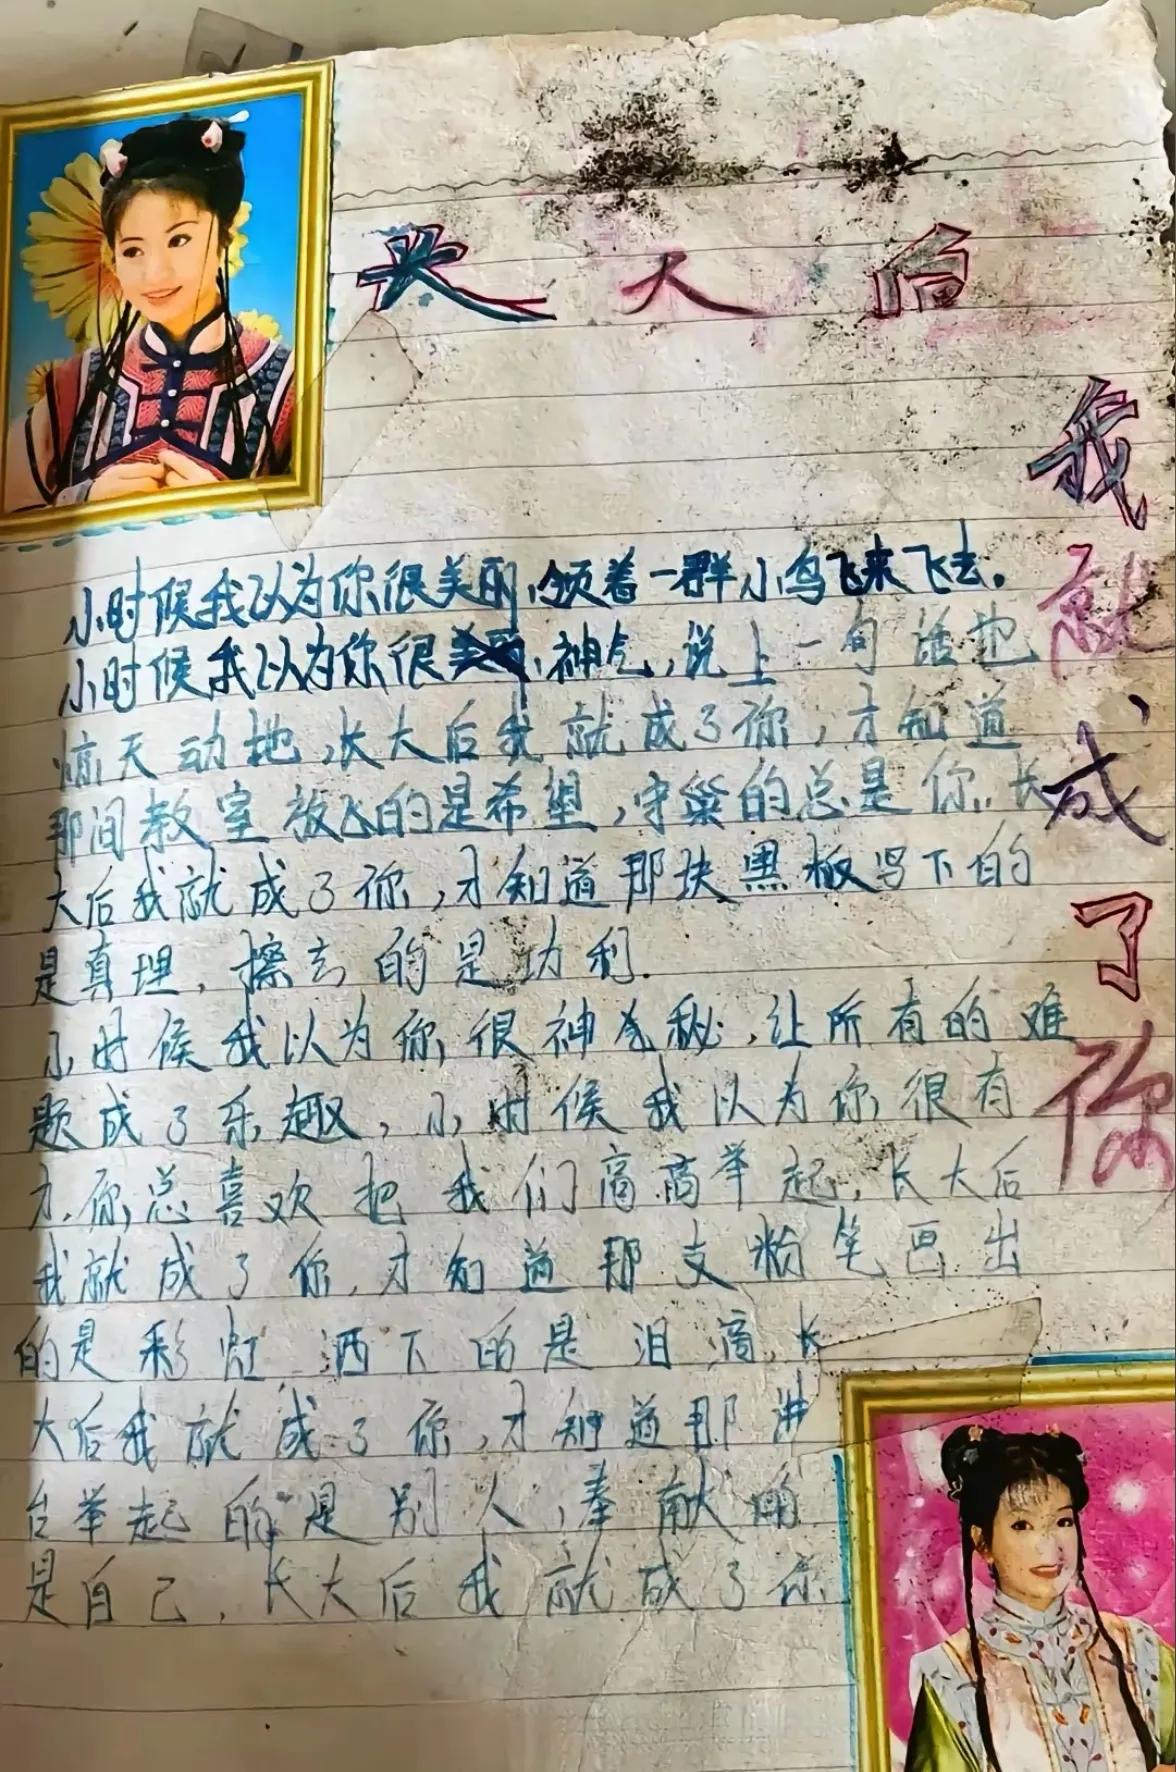 长大后
我就成了你
小时候我以为你很美丽,领着一群小鸟飞来飞去.
小时候我以为你很神气,说上一句话也
惊天动地,长大后我就成了你,才知道
那间教室放飞的是希望,守巢的总是你.长
大后我就成了你,才知道那块黑板写下的
是真理,擦去的是功利.
小时候我以为你很神秘,让所有的难
题成了乐趣,小时候我以为你很有
力,你总喜欢把我们高高举起,长大后
我就成了你,才知道那支粉笔画出
的是彩虹 洒下的是泪滴,长
大后我就成了你,才知道那讲
台举起的是别人,奉献的
是自己,长大后我就成了你